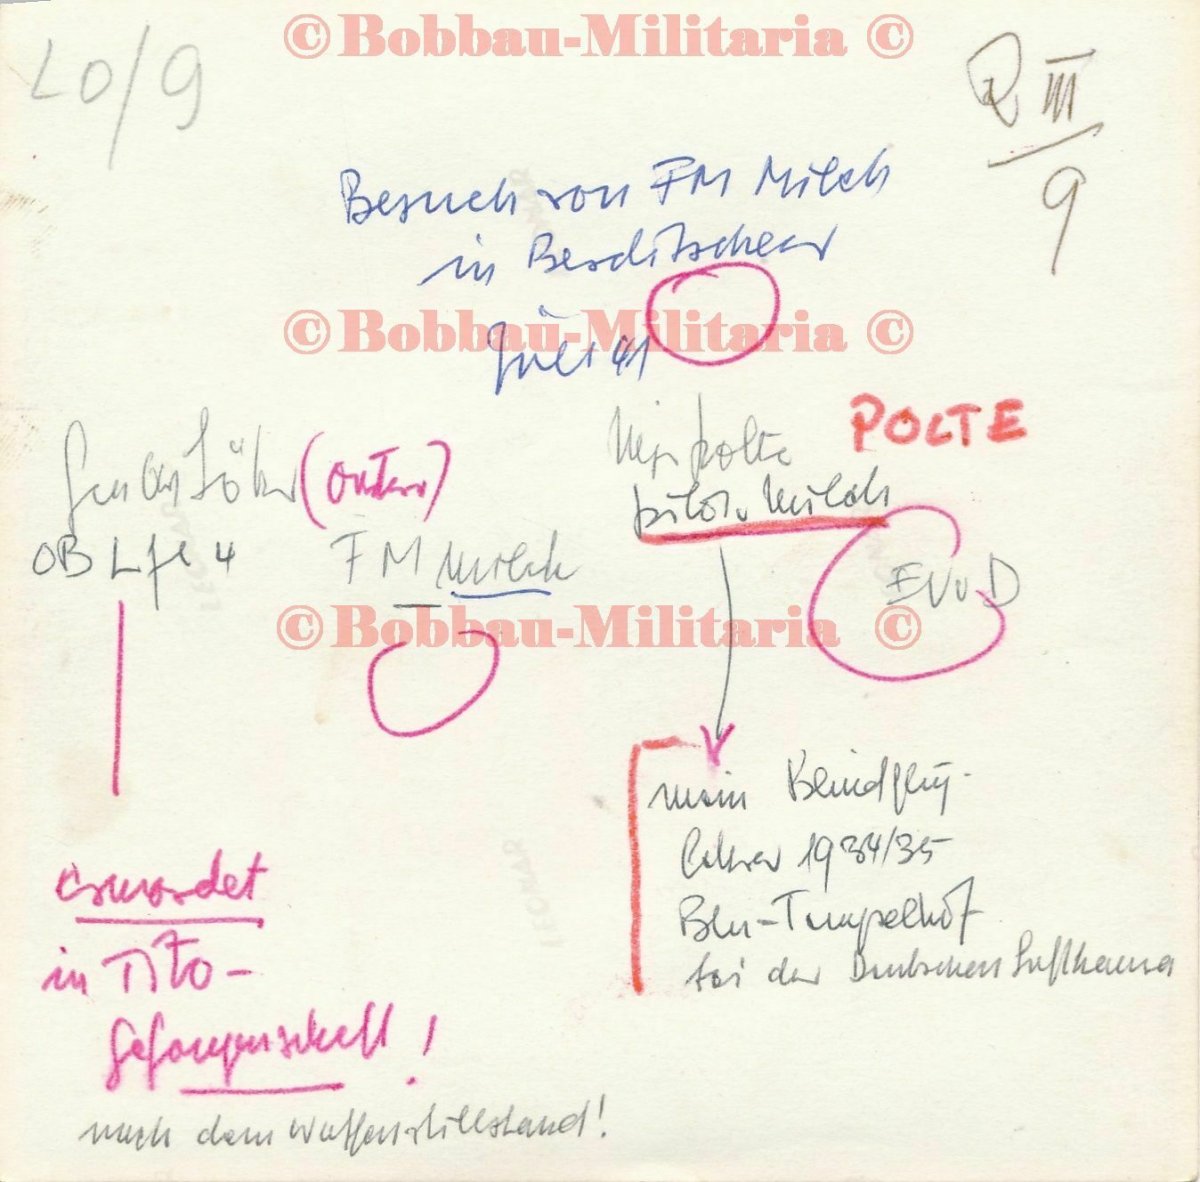 © Bobbau-Militaria ©
LO/9
Q III
9
Besuch von FM Milch
in Berditschew
Juli 41
© Bobbau-Militaria ©
Gen Löhr (
)
OB Lfl 4
FM Milch
Maj Polte
POLTE
pilot v. Milch
EVvD
© Bobbau-Militaria ©
mein Blindflug-
Lehrer 1934/35
Bln-Tempelhof
bei der Deutschen Lufthansa
ermordet
in Tito-
Gefangenschaft!
nach dem Waffenstillstand!
LEONAR